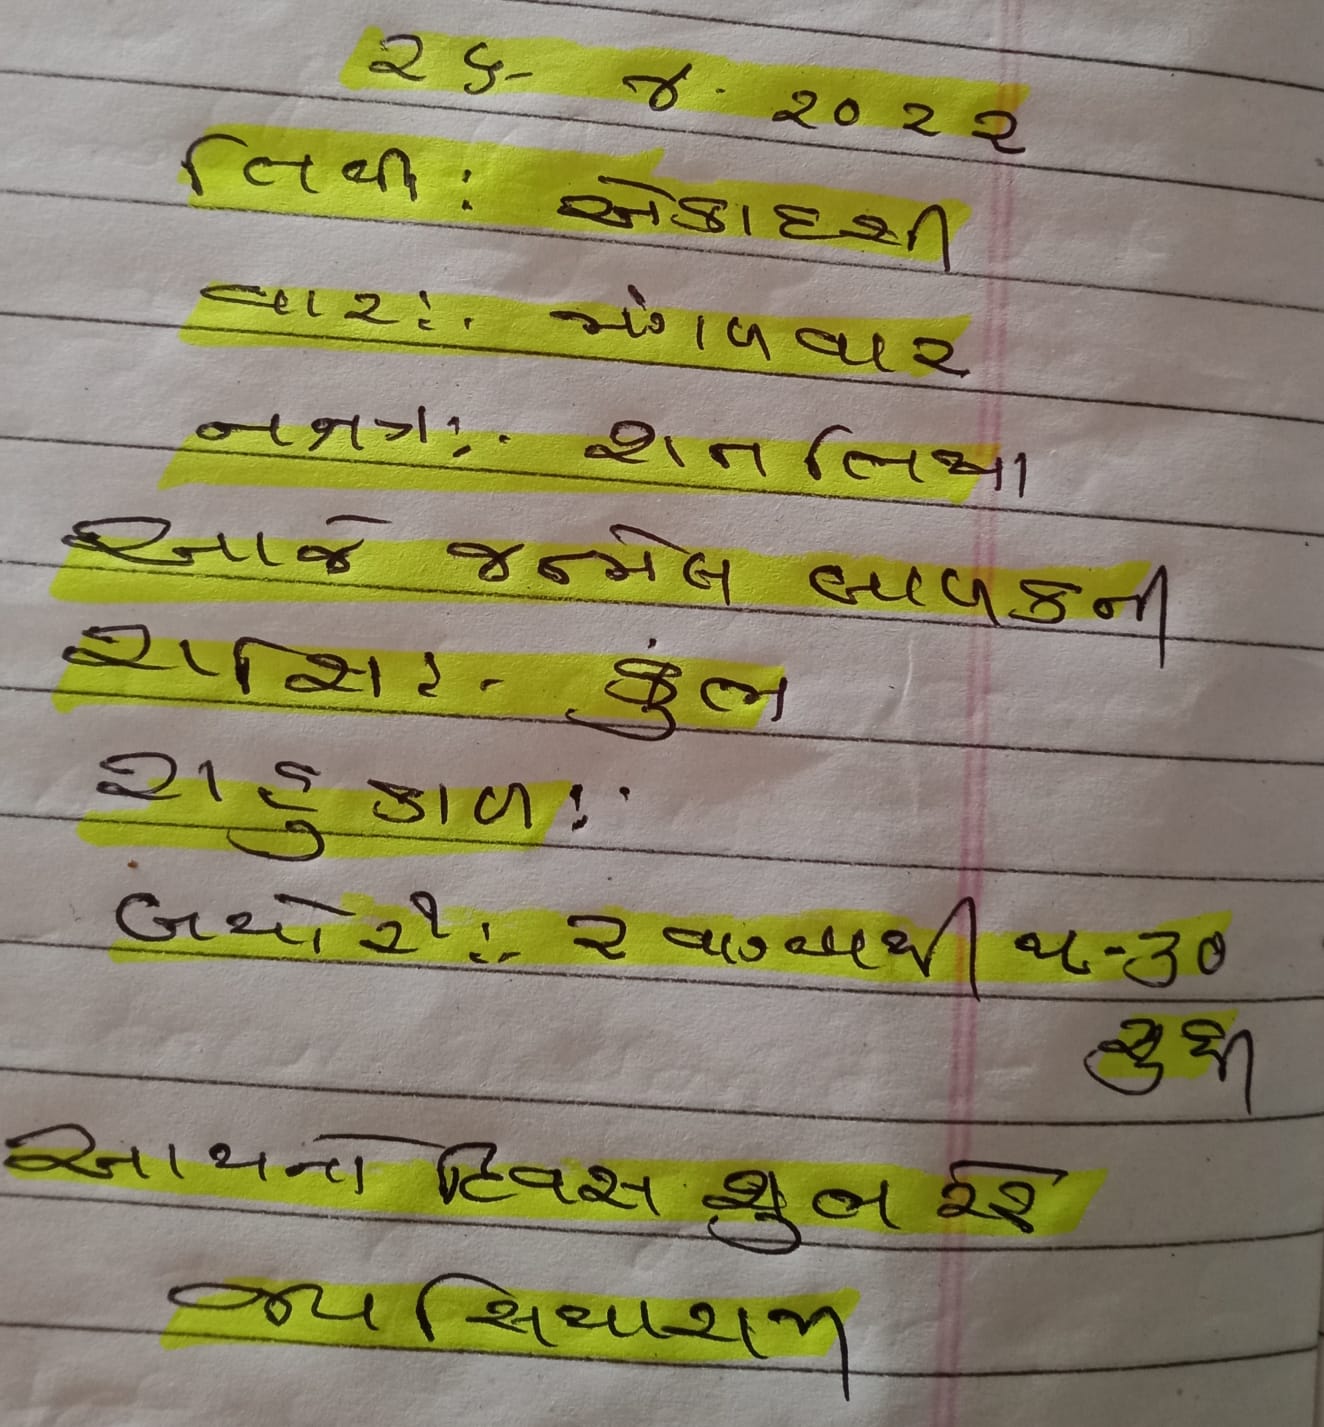 ૨૬ - ૪ . ૨૦૨૨
તિથી : એકાદશી
વાર :. મંગળવાર
નક્ષત્ર :. શતભિષા
આજે જન્મેલ બાળકની
રાશિ :. કુંભ
રાહુ કાળ :.
બપોરે :. ૨ વાગ્યાથી ૫-૩૦
સુધી
આપનો દિવસ શુભ રહે
જય સિયારામ